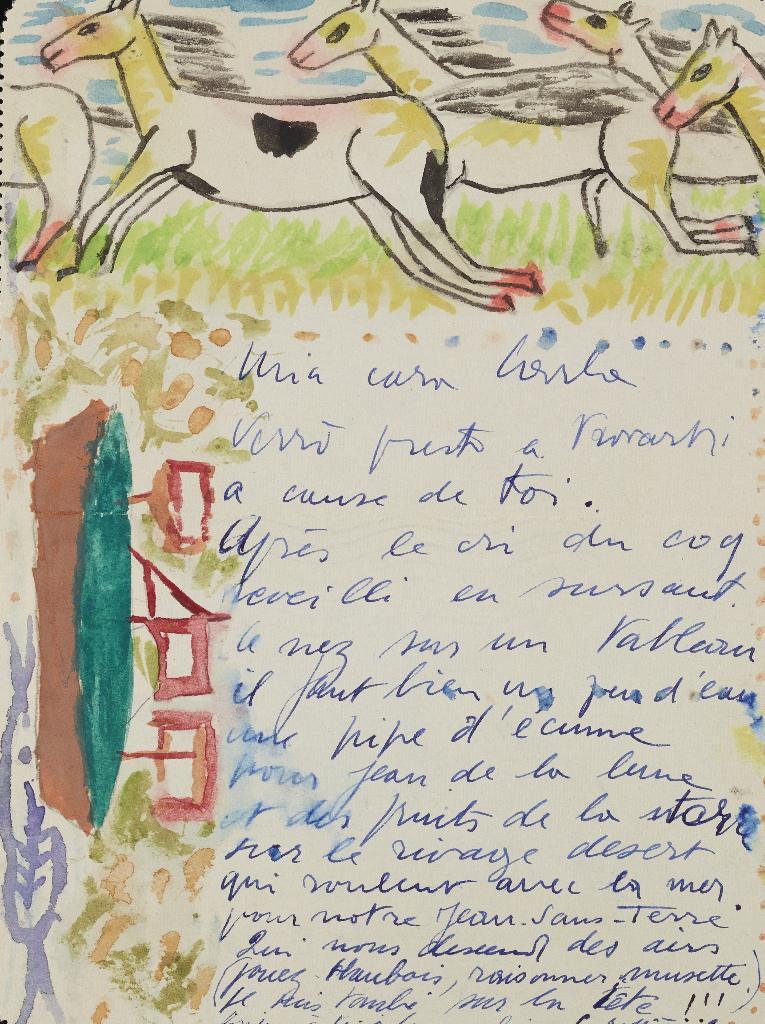 Mia cara
Verrò presto a
a cause de toi.
Après le cri du coq
reveillé en sursaut.
le nez sur un Tableau
il faut bien un peu d'eau
une pipe d'écume
pour Jean de la lune
et des fruits de la terre
sur le rivage desert
qui roulent avec la mer
pour notre Jean-Sans-Terre
Qui nous descend des airs
(Jouez Haubois, raisonner musette)
Je suis tombé sur la tête !!!